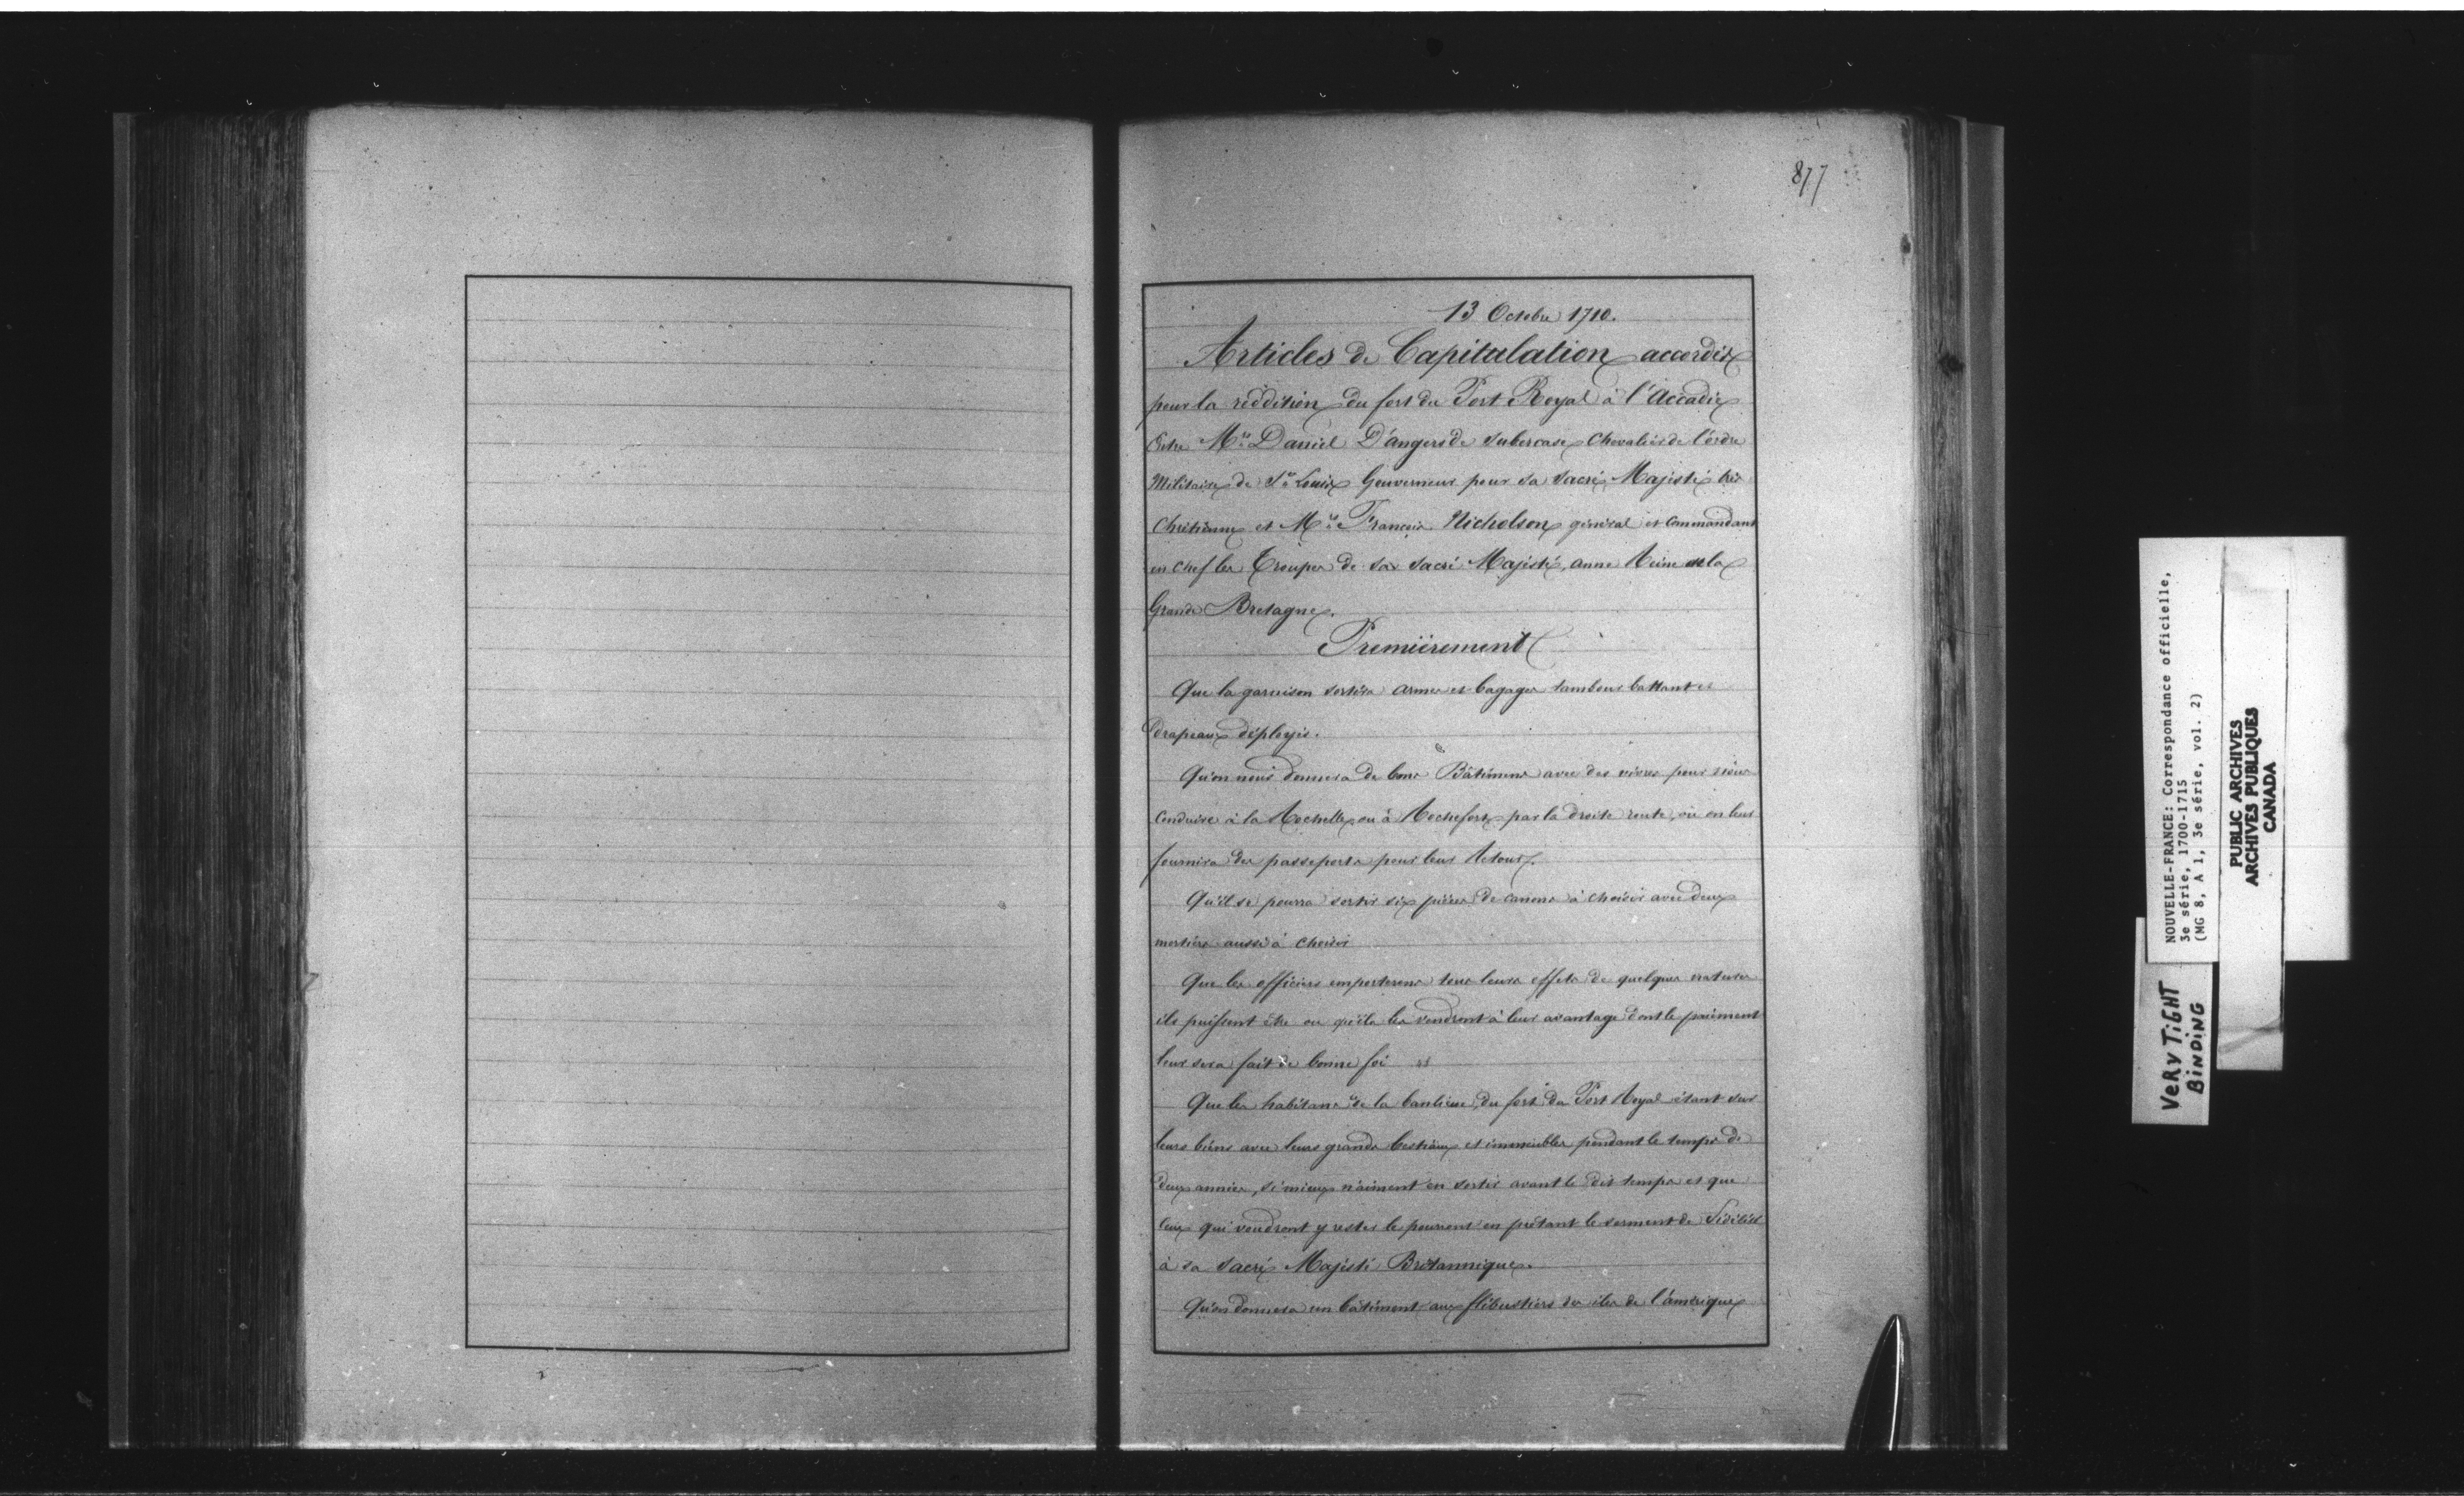 877
13 Octobre 1710.
Articles de Capitulation accordés
pour la réddition du fort du Port Royal à l'Accadie
Entre Mre Daniel D'angers de Subercase Chevalier de l'ordre
Militaire de St Louis Gouverneur pour sa Sacré Majesté très
Chrétienne et Mre Francois Nicholson général et Commandant
en chef les Troupes de sa Sacré Majesté, anne Reine de la
Grande Bretagne.
Premièrement
Que la garnison sortira armes et bagages tambour battant et
drapeaux déployés.
Qu'on nous donnera de bons Bâtimens avec des vivres pour nous
conduire à la Rochelle ou à Rochefort par la droite route, où on leur
fournira des passeports pour leur Retour.
Qu'il se pourra sortir six pièces de canons à choisir avec deux
mortiers aussi à choisir
Que les officiers emporterons tous leurs effets de quelques natures
ils puissent être ou qu'ils les vendront à leur avantage dont le paiment
leur sera fait de bonne foi
Que les habitans de la banlieue du fort du Port Royal étant sur
leurs biens avec leurs grands bestiaux et immeubles pendant le temps de
deux années, si mieux n'aiment en sortir avant le dit temps et que
ceux qui voudront y rester le pourront en prêtant le serment de Fidélité
à sa Sacré Majesté Britannique.
Qu'on donnera un bâtiment aux flibustiers des iles de l'amérique
NOUVELLE-FRANCE: Correspondance officielle,
3e série, 1700-1715
(MG 8, A 1, 3e série, vol. 2)
PUBLIC ARCHIVES
ARCHIVES PUBLIQUES
CANADA
VERY TIGHT
BINDING